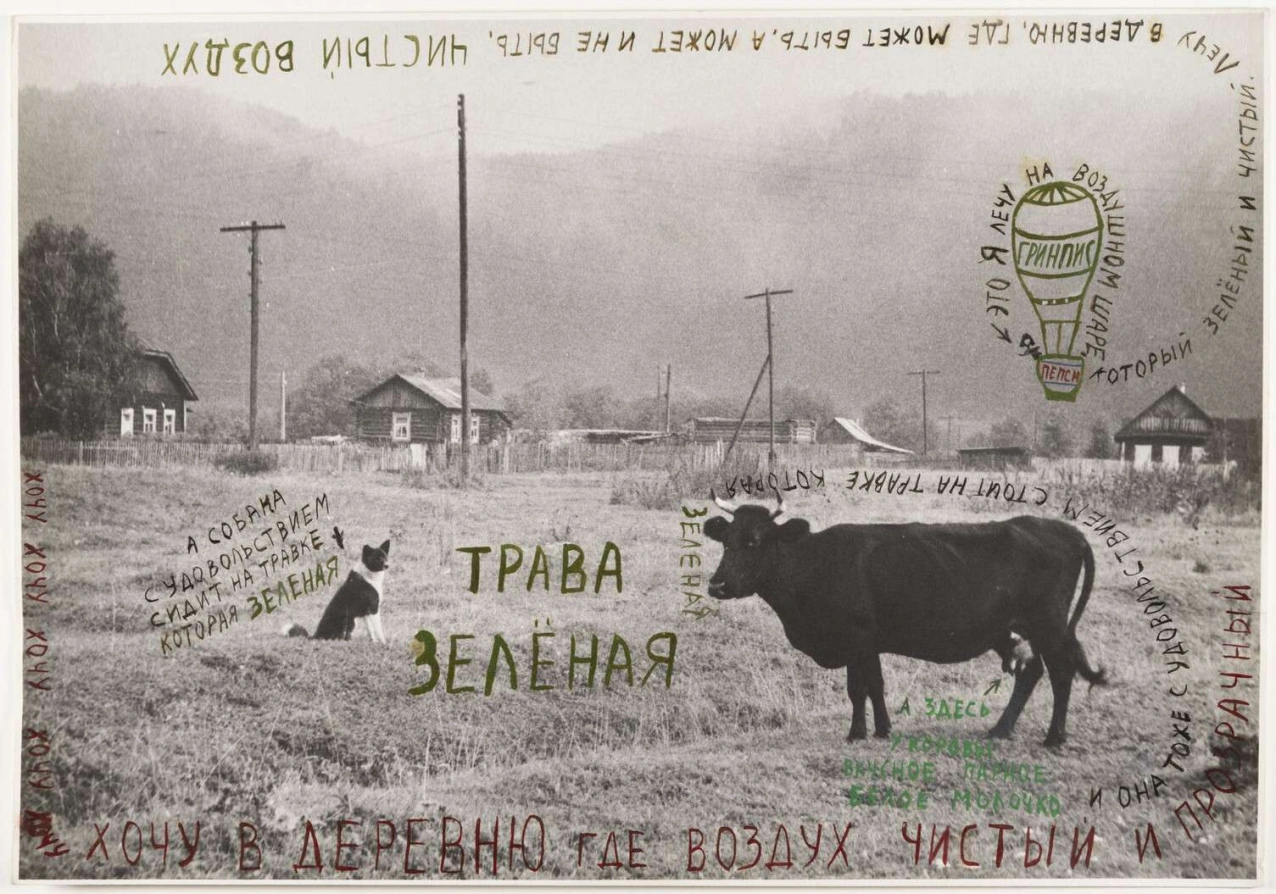 ЛЕЧУ В ДЕРЕВНЮ, ГДЕ МОЖЕТ БЫТЬ, А МОЖЕТ И НЕ БЫТЬ, ЧИСТЫЙ ВОЗДУХ
ЭТО Я ЛЕЧУ НА ВОЗДУШНОМ ШАРЕ,
КОТОРЫЙ ЗЕЛЁНЫЙ И ЧИСТЫЙ.
ГРИНПИС
ПЕПСИ
А СОБАКА
С УДОВОЛЬСТВИЕМ
СИДИТ НА ТРАВКЕ
КОТОРАЯ ЗЕЛЕНАЯ
ТРАВА
ЗЕЛЁНАЯ
И ОНА ТОЖЕ С УДОВОЛЬСТВИЕМ СТОИТ НА ТРАВКЕ КОТОРАЯ
ЗЕЛЕНАЯ
А ЗДЕСЬ
У КОРОВЫ
ВКУСНОЕ ПАРНОЕ
БЕЛОЕ МОЛОЧКО
ХОЧУ ХОЧУ ХОЧУ ХОЧУ ХОЧУ
ХОЧУ В ДЕРЕВНЮ ГДЕ ВОЗДУХ ЧИСТЫЙ И ПРОЗРАЧНЫЙ